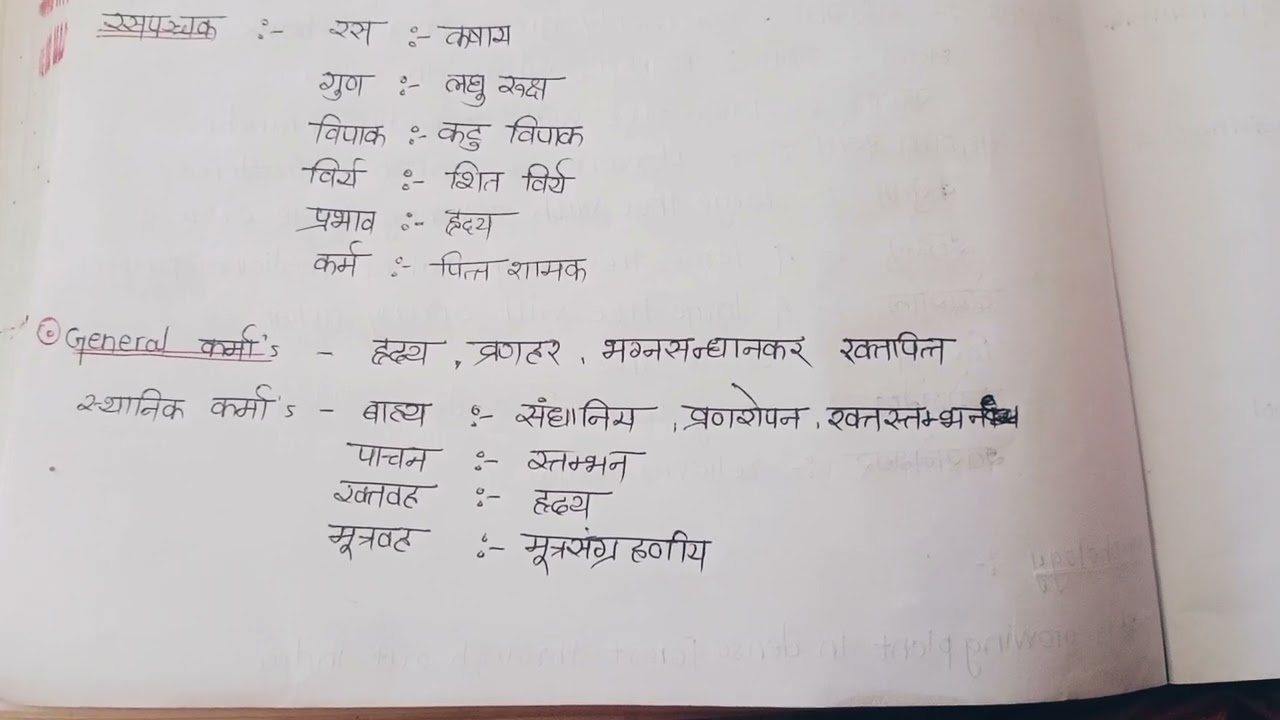 रसपञ्चक :- रस :- कषाय
गुण :- लघु रुक्ष
विपाक :- कटु विपाक
विर्य :- शित विर्य
प्रभाव :- हृदय
कर्म :- पित्त शामक
General कर्मा's - हृदय , व्रणहर , भग्नसन्धानकर रक्तपित्त
स्थानिक कर्मा's - बाह्य :- संधानिय , व्रणरोपन , रक्तस्तम्भन
पाचन :- स्तम्भन
रक्तवह :- हृदय
मूत्रवह :- मूत्रसंग्रहणीय